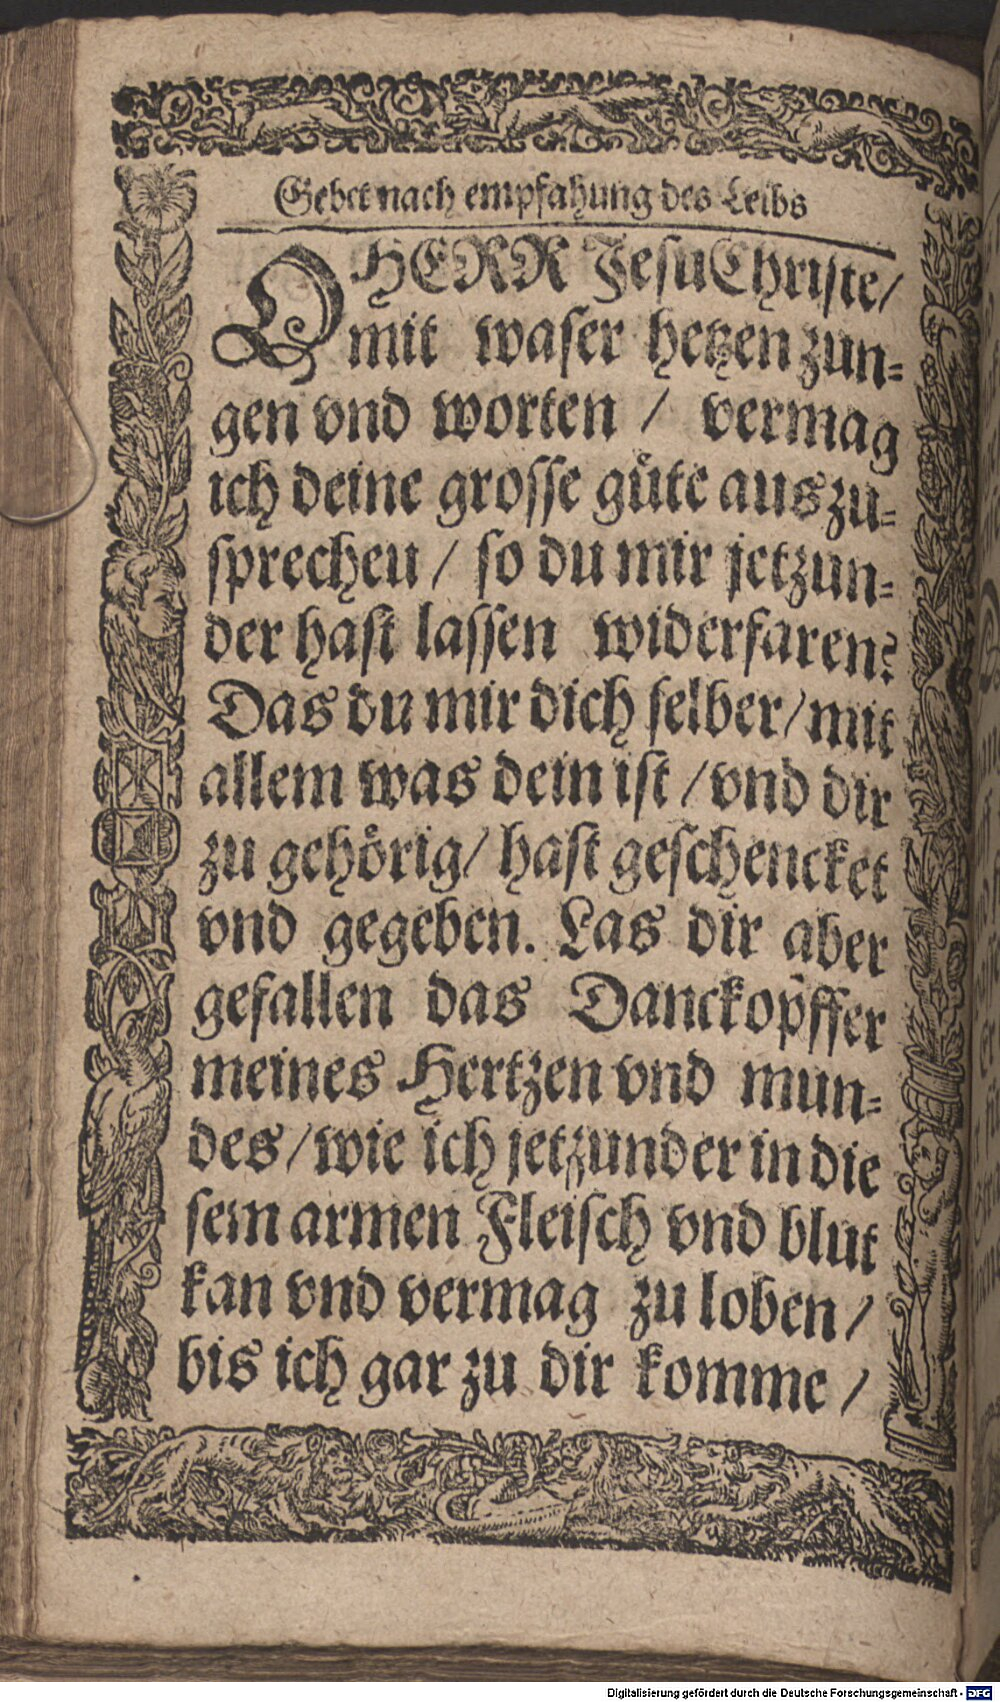 Gebet nach empfahung des Leibs
O HERR Jesu Christe/
mit waser hetzen zun⸗
gen vnd worten / vermag
ich deine grosse güte aus zu⸗
sprecheu / so du mir jetzun⸗
der hast lassen widerfaren?
Das du mir dich selber/ mit
allem was dein ist / vnd dir
zu gehörig/ hast geschencket
vnd gegeben. Las dir aber
gefallen das Danckopffer
meines Hertzen vnd mun⸗
des/ wie ich jetzunder in die
sem armen Fleisch vnd blut
kan vnd vermag zu loben /
bis ich gar zu dir komme /
Digitalisierung gefördert durch die Deutsche Forschungsgemeinschaft - DFG